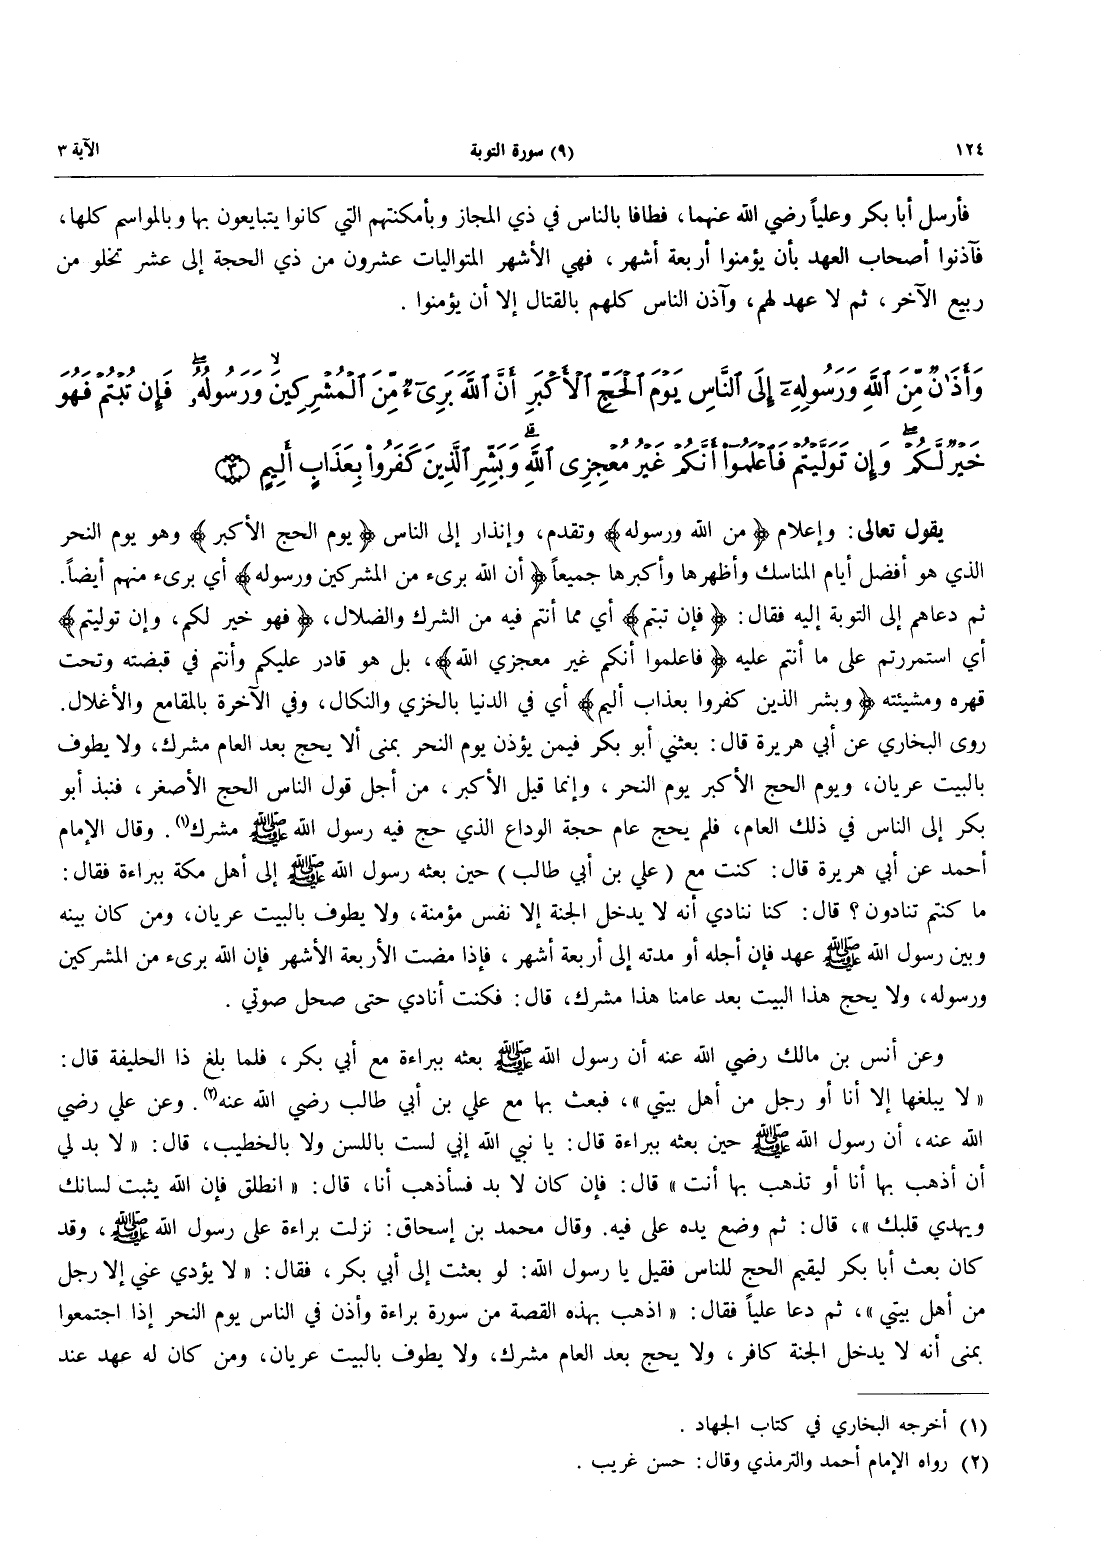 ١٢٤ (٩) سورة التوبة الآية ٣
فأرسل أبا بكر وعلياً رضي الله عنهما، فطافا بالناس في ذي المجاز وبأمكنتهم التي كانوا يتبايعون بها وبالمواسم كلها،
فآذنوا أصحاب العهد بأن يؤمنوا أربعة أشهر، فهي الأشهر المتواليات عشرون من ذي الحجة إلى عشر تخلو من
ربيع الآخر، ثم لا عهد لهم، وآذن الناس كلهم بالقتال إلا أن يؤمنوا.
وَأَذَٰنٌ مِّنَ ٱللَّهِ وَرَسُولِهِۦٓ إِلَى ٱلنَّاسِ يَوْمَ ٱلْحَجِّ ٱلْأَكْبَرِ أَنَّ ٱللَّهَ بَرِىٓءٌ مِّنَ ٱلْمُشْرِكِينَ ۙ وَرَسُولُهُۥ ۖ فَإِن تُبْتُمْ فَهُوَ
خَيْرٌ لَّكُمْ ۖ وَإِن تَوَلَّيْتُمْ فَٱعْلَمُوٓا۟ أَنَّكُمْ غَيْرُ مُعْجِزِى ٱللَّهِ ۗ وَبَشِّرِ ٱلَّذِينَ كَفَرُوا۟ بِعَذَابٍ أَلِيمٍ ﴿٣﴾
يقول تعالى: وإعلام ﴿من الله ورسوله﴾ وتقدم، وإنذار إلى الناس ﴿يوم الحج الأكبر﴾ وهو يوم النحر
الذي هو أفضل أيام المناسك وأظهرها وأكبرها جميعاً ﴿أن الله بريء من المشركين ورسوله﴾ أي بريء منهم أيضاً.
ثم دعاهم إلى التوبة إليه فقال: ﴿فإن تبتم﴾ أي مما أنتم فيه من الشرك والضلال، ﴿فهو خير لكم، وإن توليتم﴾
أي استمررتم على ما أنتم عليه ﴿فاعلموا أنكم غير معجزي الله﴾، بل هو قادر عليكم وأنتم في قبضته وتحت
قهره ومشيئته ﴿وبشر الذين كفروا بعذاب أليم﴾ أي في الدنيا بالخزي والنكال، وفي الآخرة بالمقامع والأغلال.
روى البخاري عن أبي هريرة قال: بعثني أبو بكر فيمن يؤذن يوم النحر بمنى ألا يحج بعد العام مشرك، ولا يطوف
بالبيت عريان، ويوم الحج الأكبر يوم النحر، وإنما قيل الأكبر، من أجل قول الناس الحج الأصغر، فنبذ أبو
بكر إلى الناس في ذلك العام، فلم يحج عام حجة الوداع الذي حج فيه رسول الله ﷺ مشرك(١). وقال الإمام
أحمد عن أبي هريرة قال: كنت مع (علي بن أبي طالب) حين بعثه رسول الله ﷺ إلى أهل مكة ببراءة فقال:
ما كنتم تنادون؟ قال: كنا ننادي أنه لا يدخل الجنة إلا نفس مؤمنة، ولا يطوف بالبيت عريان، ومن كان بينه
وبين رسول الله ﷺ عهد فإن أجله أو مدته إلى أربعة أشهر، فإذا مضت الأربعة الأشهر فإن الله بريء من المشركين
ورسوله، ولا يحج هذا البيت بعد عامنا هذا مشرك، قال: فكنت أنادي حتى صحل صوتي.
وعن أنس بن مالك رضي الله عنه أن رسول الله ﷺ بعثه ببراءة مع أبي بكر، فلما بلغ ذا الحليفة قال:
«لا يبلغها إلا أنا أو رجل من أهل بيتي»، فبعث بها مع علي بن أبي طالب رضي الله عنه(٢). وعن علي رضي
الله عنه، أن رسول الله ﷺ حين بعثه ببراءة قال: يا نبي الله إني لست باللسن ولا بالخطيب، قال: «لا بد لي
أن أذهب بها أنا أو تذهب بها أنت» قال: فإن كان لا بد فسأذهب أنا، قال: «انطلق فإن الله يثبت لسانك
ويهدي قلبك»، قال: ثم وضع يده على فيه. وقال محمد بن إسحاق: نزلت براءة على رسول الله ﷺ، وقد
كان بعث أبا بكر ليقيم الحج للناس فقيل يا رسول الله: لو بعثت إلى أبي بكر، فقال: «لا يؤدي عني إلا رجل
من أهل بيتي»، ثم دعا علياً فقال: «اذهب بهذه القصة من سورة براءة وأذن في الناس يوم النحر إذا اجتمعوا
بمنى أنه لا يدخل الجنة كافر، ولا يحج بعد العام مشرك، ولا يطوف بالبيت عريان، ومن كان له عهد عند
(١) أخرجه البخاري في كتاب الجهاد.
(٢) رواه الإمام أحمد والترمذي وقال: حسن غريب.